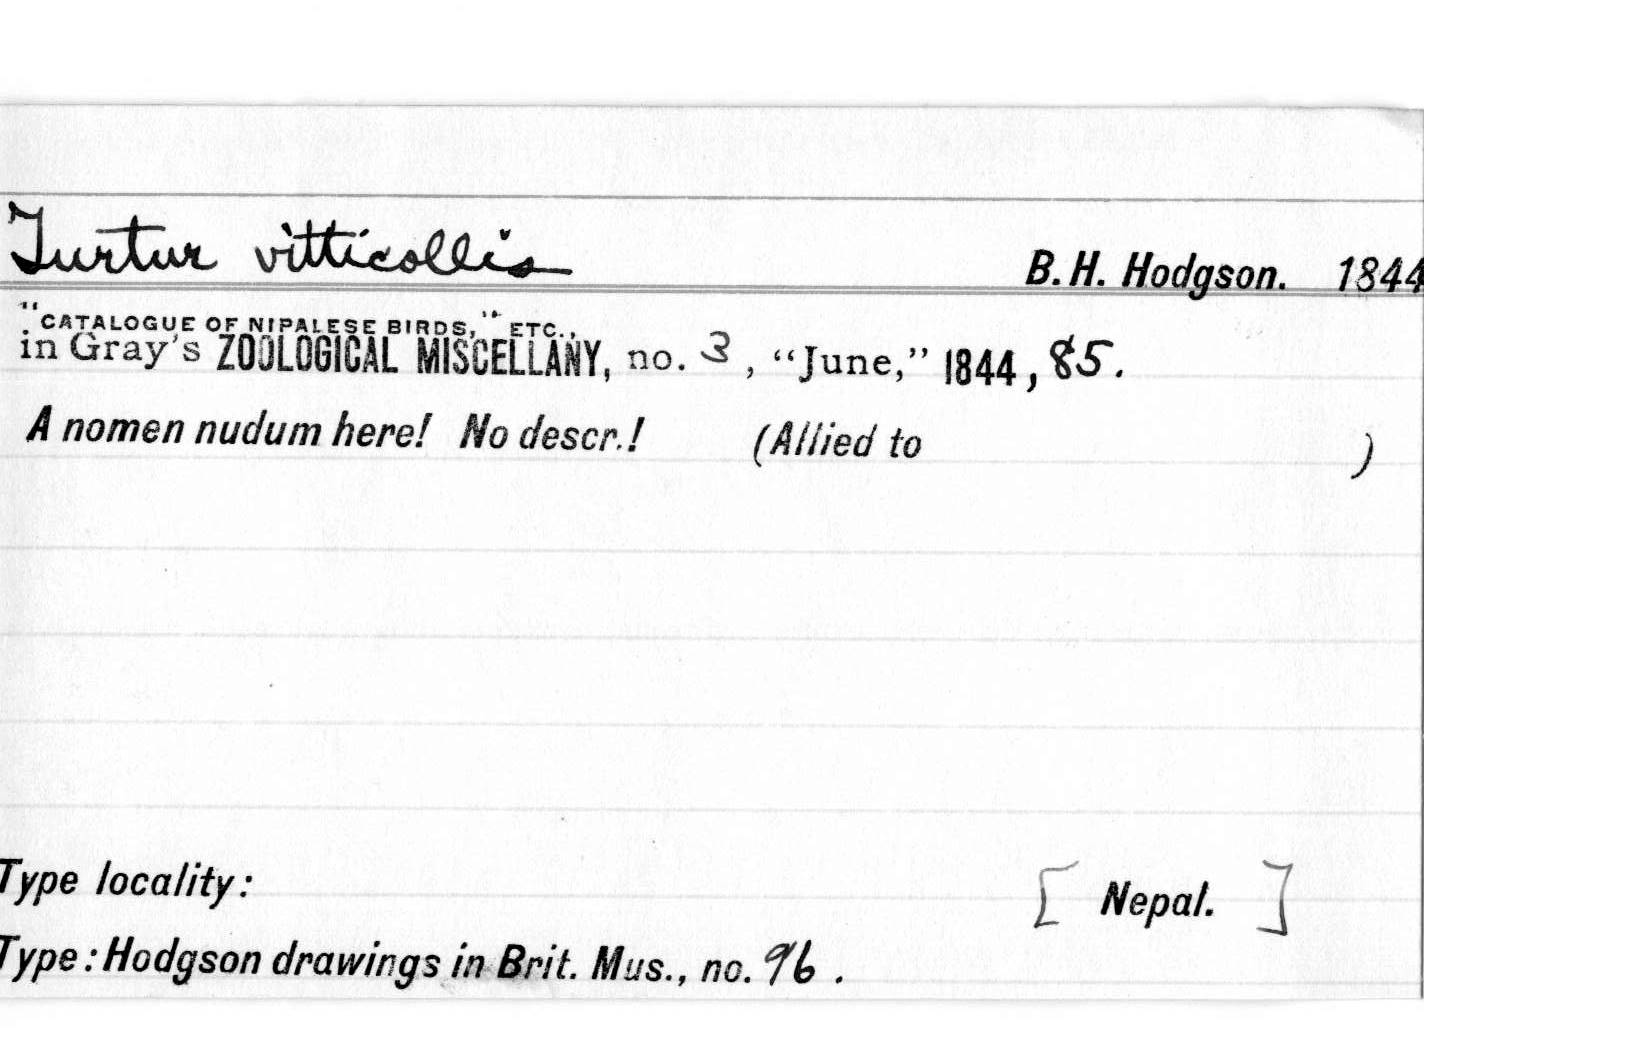 Turtur vitticollis B. H. Hodgson. 1844
"CATALOGUE OF NIPALESE BIRDS," ETC.,
in Gray's ZOOLOGICAL MISCELLANY, no. 3, "June," 1844, 85.
A nomen nudum here! No descr.! (Allied to )
Type locality: [ Nepal. ]
Type: Hodgson drawings in Brit. Mus., no. 96.